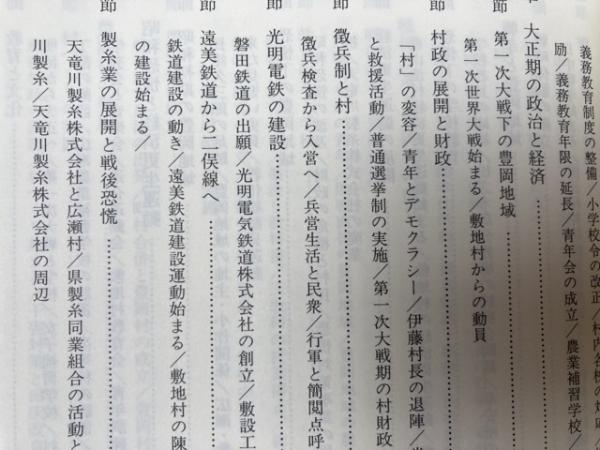 義務教育制度の整備/小学校令の改正/村内各校の
励/義務教育年限の延長/青年会の成立/農業補習学校/
大正期の政治と経済
節 第一次大戦下の豊岡地域
第一次世界大戦始まる/敷地村からの動員
節 村政の展開と財政
「村」の変容/青年とデモクラシー/伊藤村長の退陣/
と救援活動/普通選挙制の実施/第一次大戦期の村財政
節 徴兵制と村
徴兵検査から入営へ/兵営生活と民衆/行軍と簡閲点呼
節 光明電鉄の建設
磐田鉄道の出願/光明電気鉄道株式会社の創立/敷設工
節 遠美鉄道から二俣線へ
鉄道建設の動き/遠美鉄道建設運動始まる/敷地村の陳
の建設始まる/
節 製糸業の展開と戦後恐慌
天竜川製糸株式会社と広瀬村/県製糸同業組合の活動と
川製糸/天竜川製糸株式会社の周辺